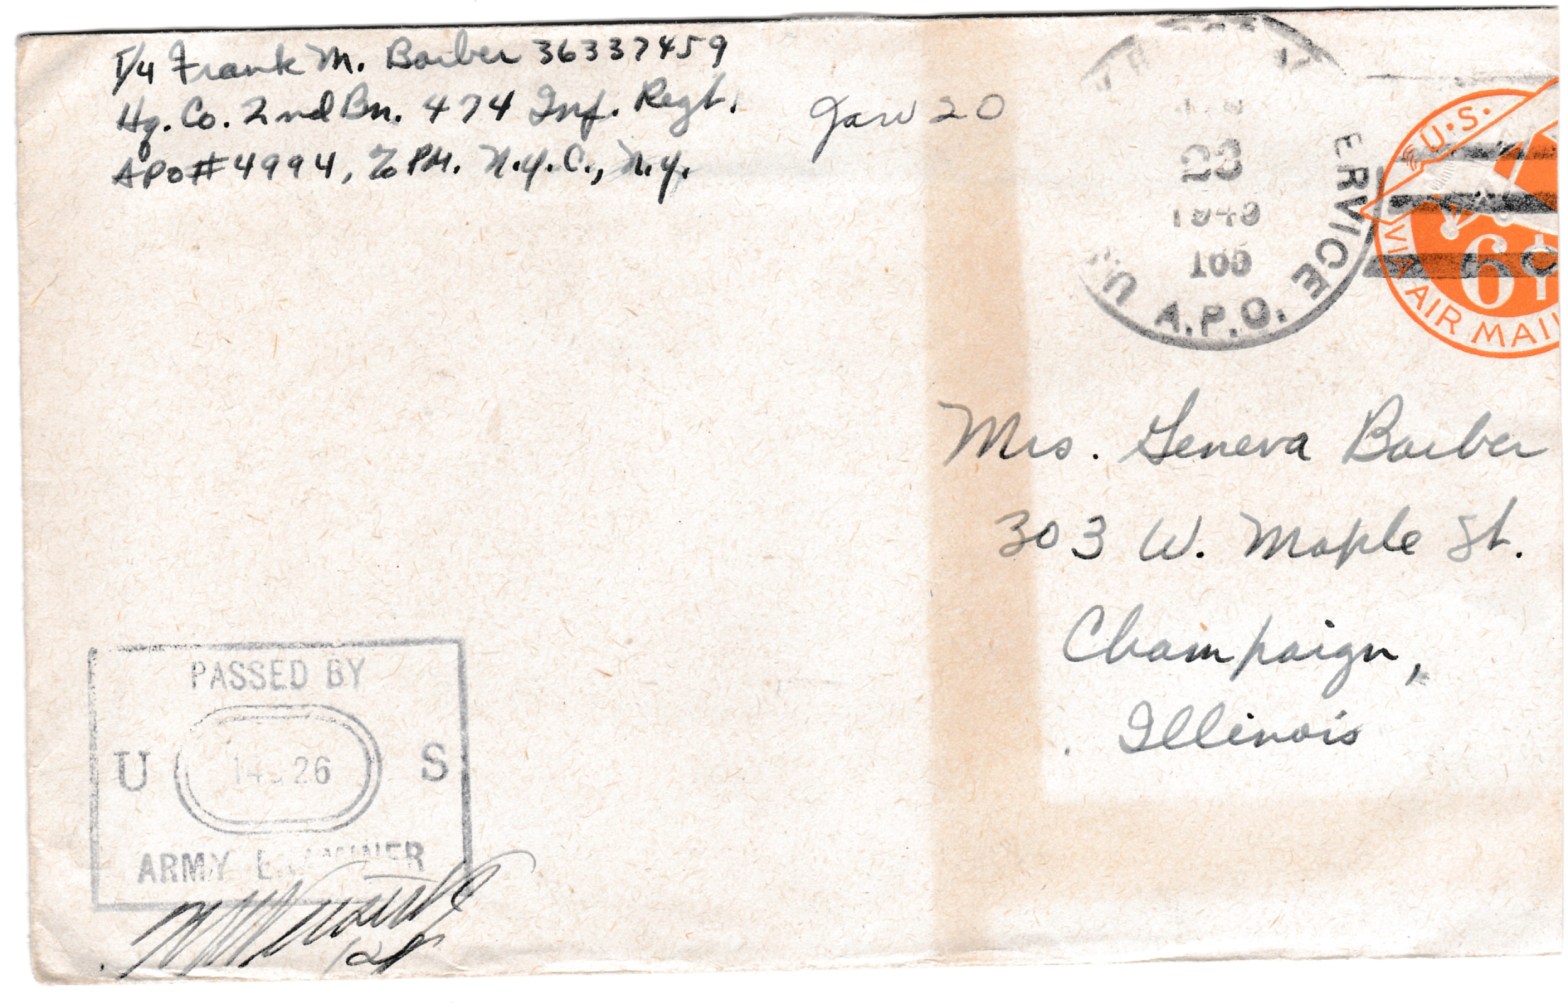 T/4 Frank M. Barber 36337459
Hq. Co. 2nd Bn. 474 Inf. Regt.
APO#4994, % PM. N.Y.C., N.Y.
Jan 20
23
U.S.
A.P.O. SERVICE
6¢
VIA AIR MAIL
Mrs. Geneva Barber
303 W. Maple St.
Champaign,
Illinois
PASSED BY
U S
26
ARMY EXAMINER